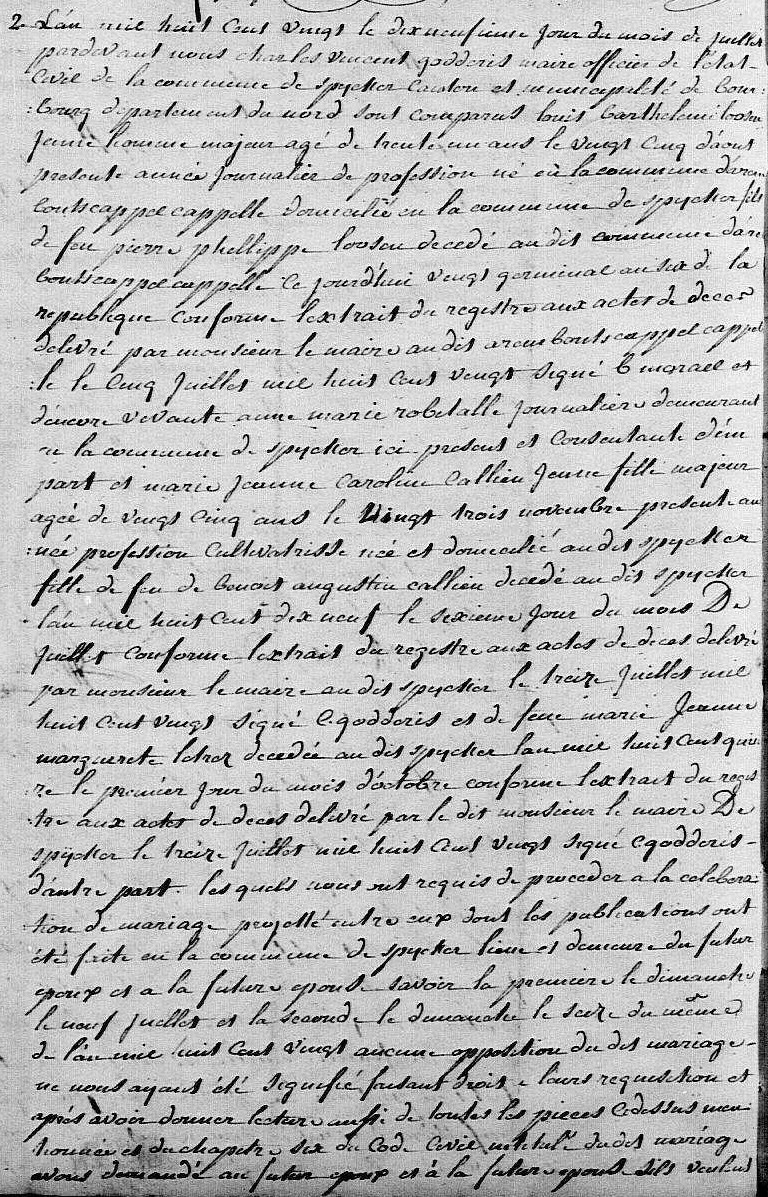 2 L'an mil huit cent vingt le dix neufieme jour du mois de juillet
pardevant nous charles vincent godderis maire officier de l'etat
civil de la commune de spycker canton et municipalité de bour:
:bourg departement du nord sont comparus louis barthelemi loosen
jeune homme majeur agé de trente un ans le vingt cinq d'aout
presente année journalier de profession né en la commune d'arem
boutscappel cappelle domicilié en la commune de spycker fils
de feu pierre phellippe loosen decedé au dit commune d'are
boutscappel cappelle ce jourd'hui vingt germinal an six de la
republique conforme l'extrait du registre aux actes de deces
delivré par monsieur le maire au dit aremboutscappel cappel
:le le cinq juillet mil huit cent vingt signé b morael et
d'encore vivante anne marie robitalle journaliere demeurant
en la commune de spycker ici present et consentante d'un
part et marie jeanne caroline callieu jeune fille majeur
ageé de vingt cinq ans le vingt trois novembre presente an
:neé profession cultivatrisse neé et domicilié au dit spycker
fille de feu de benoit augustin callieu decedé au dit spycker
l'an mil huit cent dix neuf le sixieme jour du mois De
juillet conforme l'extrait du registre aux actes de deces delivré
par monsieur le maire au dit spycker le treize juillet mil
huit cent vingt signé C godderis et de feue marie Jeanne
marguerete decedée au dit spycker l'an mil huit cent quin
:ze le premier jour du mois d'octobre conforme l'extrait du regis
:tre aux actes de deces delivré par le dit monsieur le maire De
spycker le treize juillet mil huit cent vingt signé C godderis -
d'autre part. les quels nous ont requis de proceder a la celebra:
:tion de mariage projetté entre eux dont les publications ont
été faite en la commune de spycker lieu et demeure du futur
epoux et a la future epouse savoir la premiere le dimanche
le neuf juillet et la seconde le dimanche le seize du même
de l'an mil huit cent vingt aucune opposition du dit mariage -
ne nous ayant été signifié faisant droit a leurs requisition et
aprés avoir donner lecture aussi de toutes les pieces cidessus men
:tionneé et du chapitre six du Code Civil intitulé du dit mariage
avons demandé au futur epoux et à la future epouse s'ils veulent